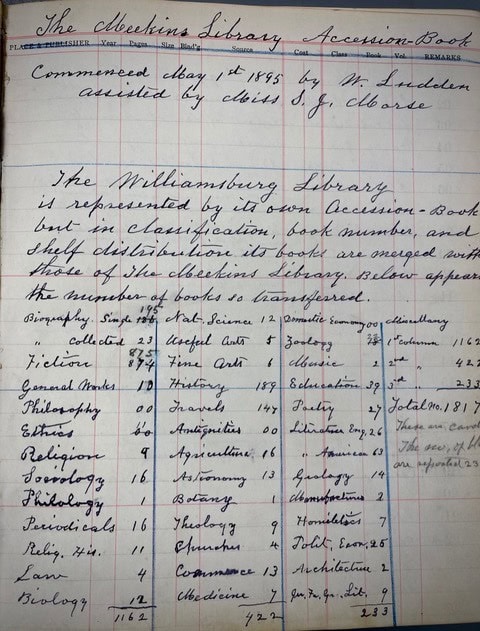 The Meekins Library Accession-Book
PLACE & PUBLISHER Year Pages Size Bind'g Source Cost Class Book Vol. REMARKS
Commenced May 1st 1895 by W. Ludden
assisted by Miss S. J. Morse
The Williamsburg Library
is represented by its own Accession-Book
but in classification, book number, and
shelf distribution its books are merged with
those of The Meekins Library. Below appears
the number of books so transferred.
195
Biography. Single 186 Nat. Science 12 Domestic Economy 00 Miscellany
" Collected 23 Useful Arts 5 Zoology 1st Column 1162
875
Fiction 874 Fine Arts 6 Music 2 2nd " 422
General Works 10 History 189 Education 39 3rd " 233
Philosophy 00 Travels 147 Poetry 27 Total No. 1817
Ethics 00 Antiquities 00 Literature Eng. 26 These are
Religion 9 Agriculture 16 " American 63 The
Sociology 16 Astronomy 13 Geology 14 are repeated 23
Philology 1 Botany 1 Manufactures 2
Periodicals 16 Theology 9 Homiletics 7
Relig. His. 11 Churches 4 Polit. Econ. 25
Law 4 Commence 13 Architecture 2
Biology 12 Medicine 7 Gr. Lit. 9
1162 422 233